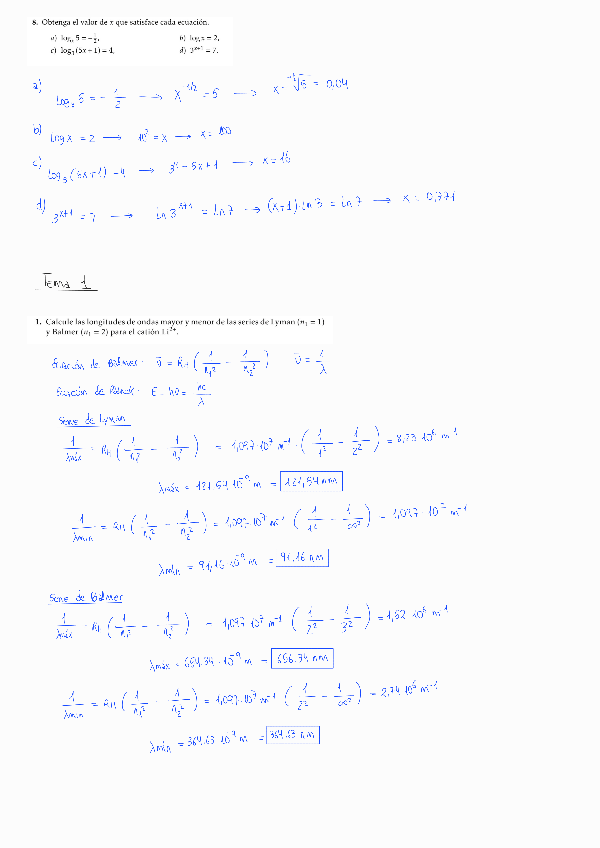 8. Obtenga el valor de x que satisface cada ecuación.
a) logₓ 5 = −½, b) log x = 2,
c) log₃(5x + 1) = 4, d) 3ˣ⁺¹ = 7.
a) logₓ 5 = − 1/2 ⟶ x⁻¹ᐟ² = 5 ⟶ x = = 0,04
b) log x = 2 ⟶ 10² = x ⟶ x = 100
c) log₃ (5x+1) = 4 ⟶ 3⁴ = 5x + 1 ⟶ x = 16
d) 3ˣ⁺¹ = 7 ⟶ ln 3ˣ⁺¹ = ln 7 ⟶ (x+1)·ln 3 = ln 7 ⟶ x = 0,771
Tema 1
1. Calcule las longitudes de ondas mayor y menor de las series de Lyman (n₁ = 1)
y Balmer (n₁ = 2) para el catión Li²⁺.
Ecuación de Balmer: ῡ = R_H ( 1/n₁² − 1/n₂² ) ῡ = 1/λ
Ecuación de Planck: E = hν = hc/λ
Serie de Lyman
1/λmáx = R_H ( 1/n₁² − 1/n₂² ) = 1,097·10⁷ m⁻¹ · ( 1/1² − 1/2² ) = 8,23·10⁶ m⁻¹
λmáx = 121,54·10⁻⁹ m = 121,54 nm
1/λmin = R_H ( 1/n₁² − 1/n₂² ) = 1,097·10⁷ m⁻¹ ( 1/1² − 1/∞² ) = 1,097·10⁷ m⁻¹
λmin = 91,16·10⁻⁹ m = 91,16 nm
Serie de Balmer
1/λmáx = R_H ( 1/n₁² − 1/n₂² ) = 1,097·10⁷ m⁻¹ ( 1/2² − 1/3² ) = 1,52·10⁶ m⁻¹
λmax = 656.34·10⁻⁹ m = 656.34 nm
1/λmin = R_H ( 1/n₁² − 1/n₂² ) = 1,097·10⁷ m⁻¹ ( 1/2² − 1/∞² ) = 2,74·10⁶ m⁻¹
λmin = 364.63·10⁻⁹ m = 364.63 nm